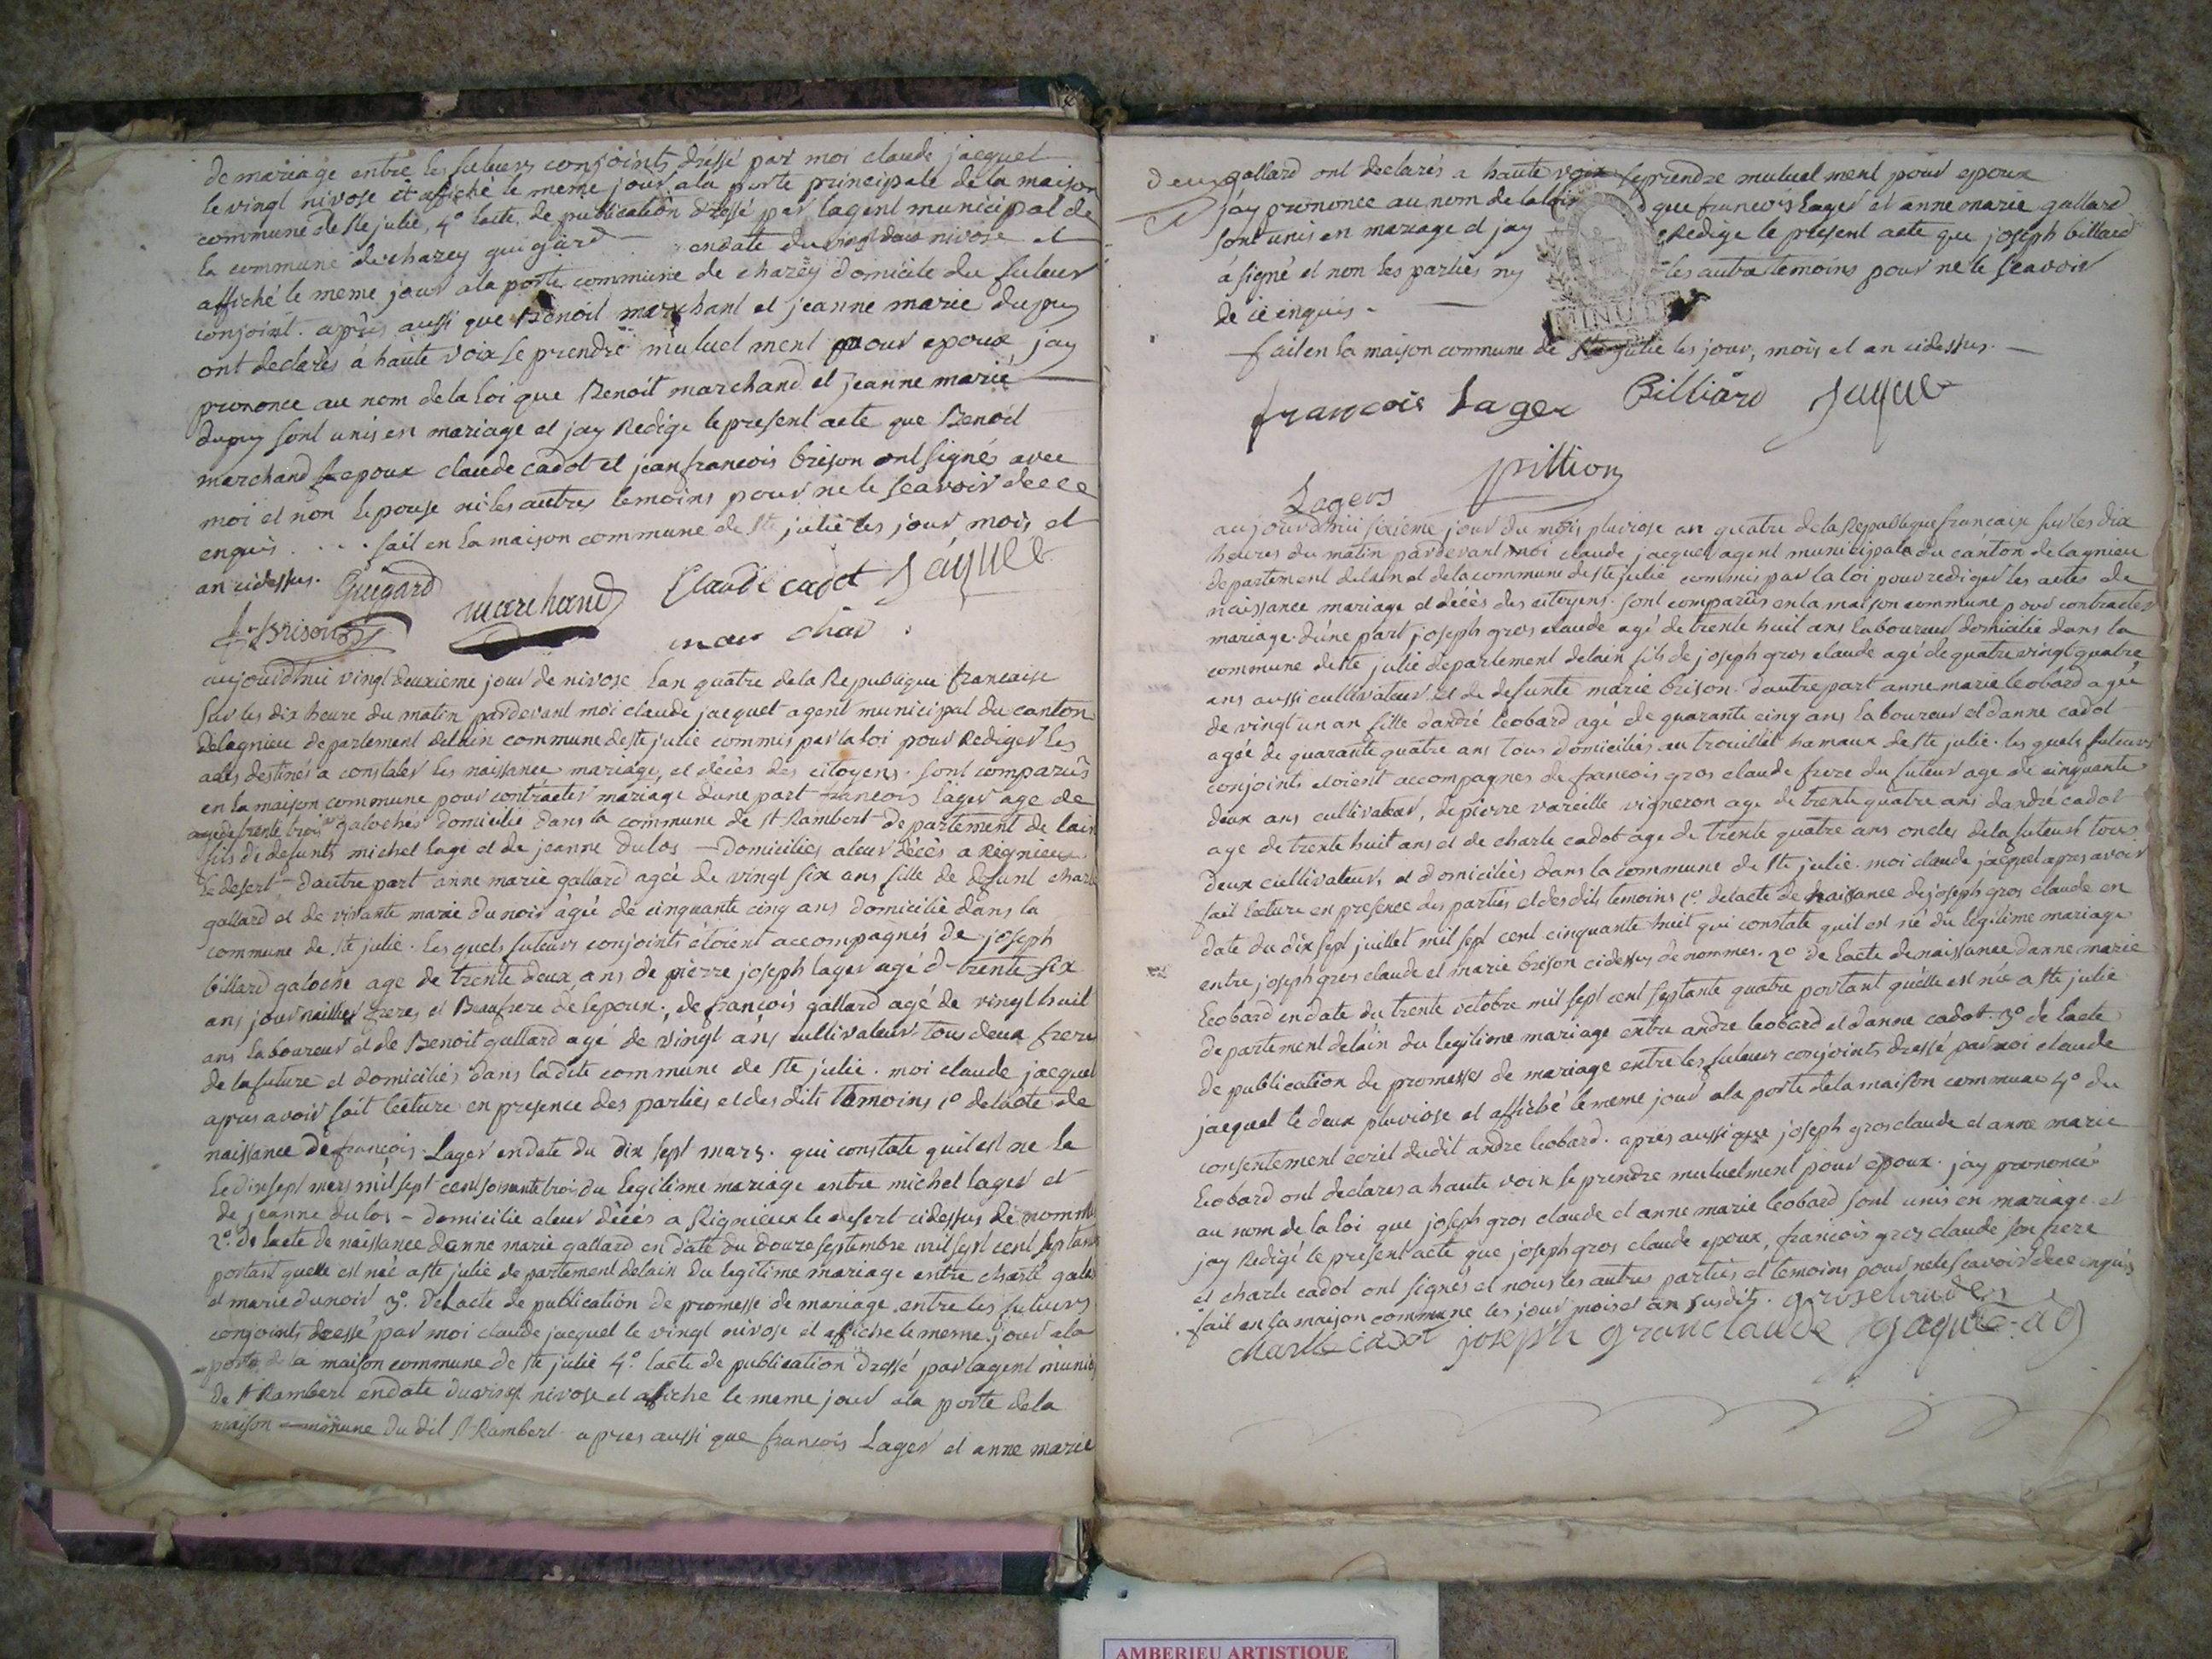 de mariage entre les futurs conjoints dressé par moi claude jacquet
le vingt nivose et affiché le meme jour ala porte principale dela maison
commune de Ste julie, 4° lacte de publication dressé par lagent municipal de
la commune de chazey guigard en date du vingt deux nivose et
affiché le meme jour ala porte commune de chazey domicile du futeur
conjoint. après aussi que Benoit marchant et jeanne marie dupuy
ont declarés à haute voix se prendre mutuel ment pour epoux jay
prononce au nom dela Loi que Benoit marchand et jeanne marie
dupuy sont unis en mariage et jay Redige le present acte que Benoit
marchand epoux claude cadot et jean francois brison ont signés avec
moi et non lepouse ni les autres temoins pour ne le scavoir de ce
enquis . . . . fait en la maison commune de Ste julie les jour mois et
an cidessus. Guigard
marchand Claude cadot jaquet
f. brison
mar char
aujourdhui vingt deuxieme jour de nivose lan quatre dela Republique francaise
sur les dix heure du matin pardevant moi claude jacquet agent municipal du canton
delagnieu departement delain commune deste julie commis par la loi pour Rediger les
actes destinés a constater les naissance mariage, et décès des citoyens. sont comparus
en la maison commune pour contracter mariage dune part francois lager age de
trente trois galoches domicilié dans la commune de St Rambert departement de lain
fils de defunts michel lage et de jeanne dulos — domiciliés aleur décès a Rignieux
le desert — dautre part anne marie gallard agée de vingt six ans fille de defunt charle
gallard et de vivante marie dunois agée de cinquante cinq ans domicilié dans la
commune de Ste julie. les quels futeurs conjoints étoient accompagnés de joseph
billard galoche age de trente deux ans de pierre joseph lager agé d trente six
ans journaillier freres et Beaufrere de lepoux, de francois gallard agé de vingt huit
ans laboureur et de Benoit gallard agé de vingt ans cultivateur tous deux frere
de la future et domiciliés dans ladite commune de Ste julie. moi claude jacquet
apres avoir fait lecture en presence des parties et des dits temoins 1° delacte de
naissance de francois Lager endate du dix sept mars. qui constate quil est ne le
le dix sept mars mil sept cent soixante trois du legitime mariage entre michel lager et
de jeanne dulos — domicilié aleur décès a Rignieux le desert cidessus dé nommé
2° de lacte de naissance danne marie gallard en date du douze septembre mil sept cent septante
portant quelle est neé a ste julie departement delain du legitime mariage entre charle galla
et marie dunois 3°. delacte de publication de promesse de mariage entre les futeurs
conjoints dressé par moi claude jacquet le vingt nivose et affiche le meme jour ala
porte de la maison commune de Ste julie 4°. lacte de publication dressé par lagent munici
de St Rambert endate du vingt nivose et affiche le meme jour ala porte dela
maison commune du dit St Rambert apres aussi que francois Lager et anne marie
deux
gallard ont declarés a haute voix se prendre mutuel ment pour epoux
jay prononce au nom de la loi que francois Lager et anne marie gallard
sont unis en mariage et jay Redige le present acte que joseph billard
à signé et non les parties ny les autre temoins pour ne le scavoir
de ce enquis.
fait en la maison commune de Ste julie les jour, mois et an cidessus.
MINUT
françois Lager Billiard jaquet
pittion
Lagers
aujourdhui sixieme jour du mois pluviose an quatre dela Republique francaise sur les dix
heures du matin pardevant moi claude jacquet agent municipale du canton de lagnieu
departement delain et dela commune de Ste julie commis par la loi pour rediger les actes de
naissance mariage et décès des citoyens. sont comparus en la maison commune pour contracter
mariage dune part joseph gros claude agé de trente huit ans laboureur domicilié dans la
commune de Ste julie departement delain fils de joseph gros claude agé de quatre vingt quatre
ans aussi cultivateur et de defunte marie brison. dautre part anne marie leobard agée
de vingt un an fille dandré leobard agé de quarante cinq ans laboureur et danne cadot
agée de quarante quatre ans tous domiciliés au trouillet hamaux de Ste julie. les quels futeurs
conjoints etoient accompagnés de francois gros claude frere du futeur age de cinquante
deux ans cultivateur, de pierre vareille vigneron age de trente quatre ans dandré cadot
age de trente huit ans et de charle cadot age de trente quatre ans oncles dela futeure tous
deux cultivateurs et domiciliés dans la commune de Ste julie. moi claude jacquet apres avoir
fait lecture en presence des parties et des dits temoins 1° delacte de naissance de joseph gros claude en
date du dix sept juillet mil sept cent cinquante huit qui constate quil est né du légitime mariage
entre joseph gros claude et marie brison cidessus de nommes. 2° de lacte de naissance danne marie
leobard en date du trente octobre mil sept cent septante quatre portant quelle est née a Ste julie
departement delain du legitime mariage entre andre leobard et danne cadot. 3° de lacte
de publication de promesses de mariage entre les futeurs conjoints dressé par moi claude
jacquet le deux pluviose et affiché le meme jour ala porte dela maison commune 4° du
consentement écrit dudit andre leobard. après aussi que joseph gros claude et anne marie
leobard ont declares a haute voix se prendre mutuelment pour epoux. jay prononcé
au nom de la loi que joseph gros claude et anne marie leobard sont unis en mariage et
jay Redigé le present acte que joseph gros claude epoux, francois gros claude son frere
et charle cadot ont signés et nous les autres parties et temoins pour ne le scavoir de ce enquis
fait en la maison commune les jour mois et an susdit. grosclaude
charle cadot joseph gronclaude jaquet ag
AMBERIEU ARTISTIQUE